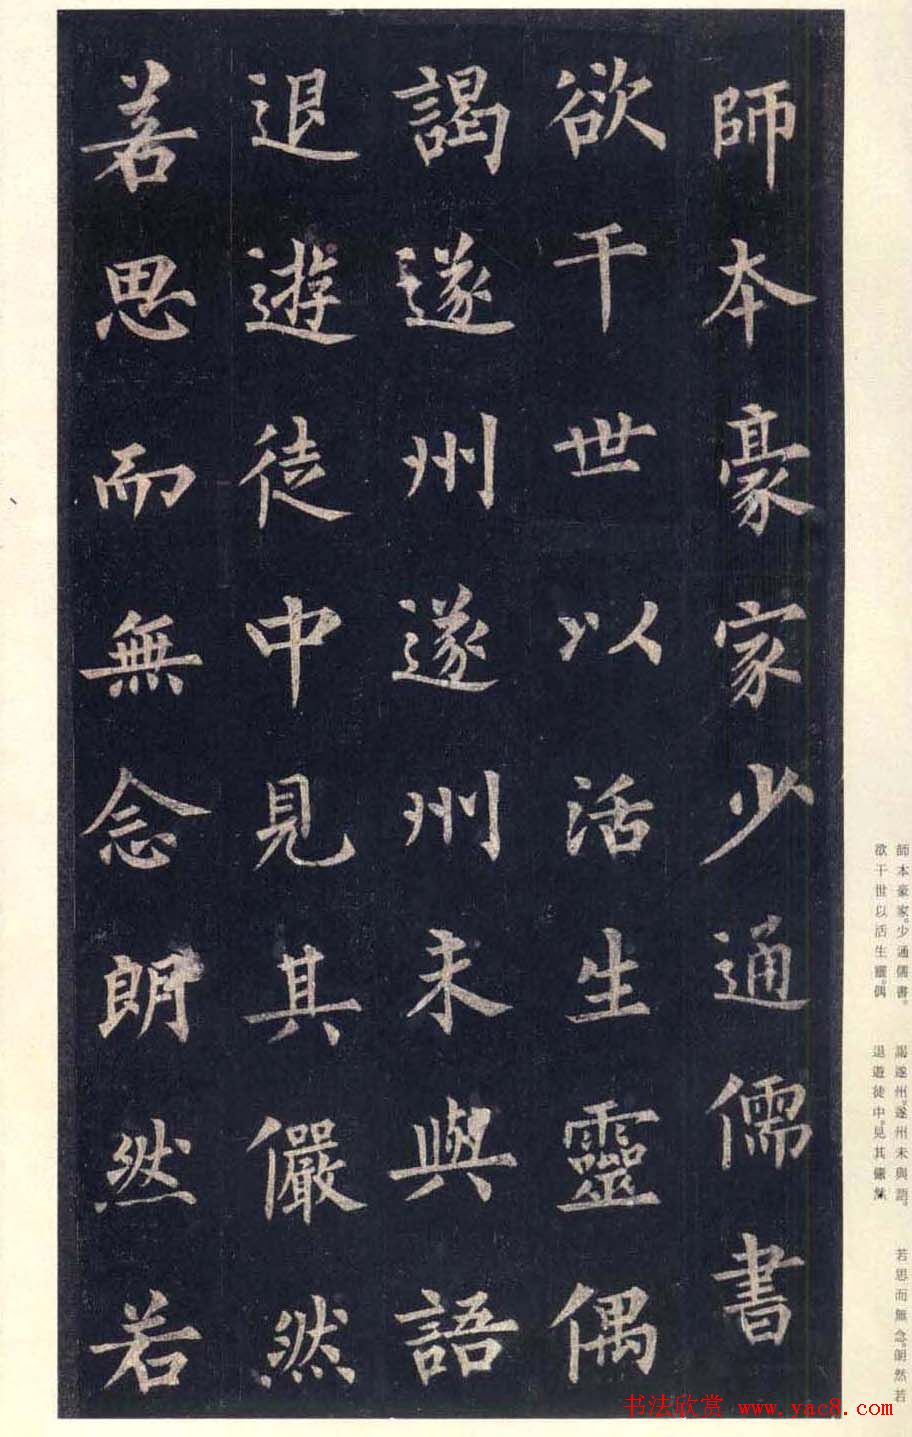 師本豪家少通儒書
欲干世以活生靈偶
謁遂州遂州未與語
退遊徒中見其儼然
若思而無念朗然若
師本豪家。少通儒書。
欲干世以活生靈。偶
謁遂州。遂州未與語。
退遊徒中。見其儼然
若思而無念。朗然若
书法欣赏 www.yac8.com